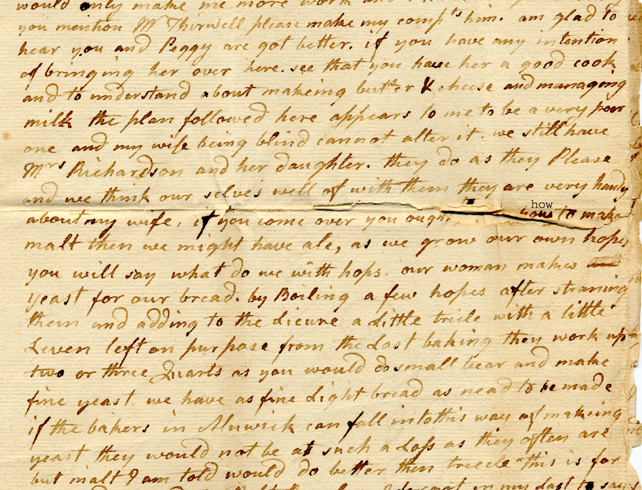 would only make me more work and
you mention Mr Thirwell please make my compts him. am glad to
hear you and Peggy are got better. if you have any intention
of bringing her over here. see that you have her a good cook
and to understand about makeing butter & cheese and managing
milk the plan followed here appears to me to be a very poor
one and my wife being blind cannot alter it. we still have
Mrs Richardson and her daughter. they do as they Please
and we think our selves well of with them they are very handy
about my wife, if you come over you ought how to make
malt then we might have ale, as we grow our own hopes
you will say what do we with hops. our woman makes
yeast for our bread. by Boiling a few hopes after straning
them and adding to the licure a little tricle with a little
Leven left on purpose from the Last baking they work up
two or three Quarts as you would do small bear and make
fine yeast. we have as fine Light bread as nead to be made
if the bakers in Alnwick can fall into this way of makeing
yeast they would not be at such a Loss as they often are
but malt I am told would do better then treecle this is for
in my Last to say